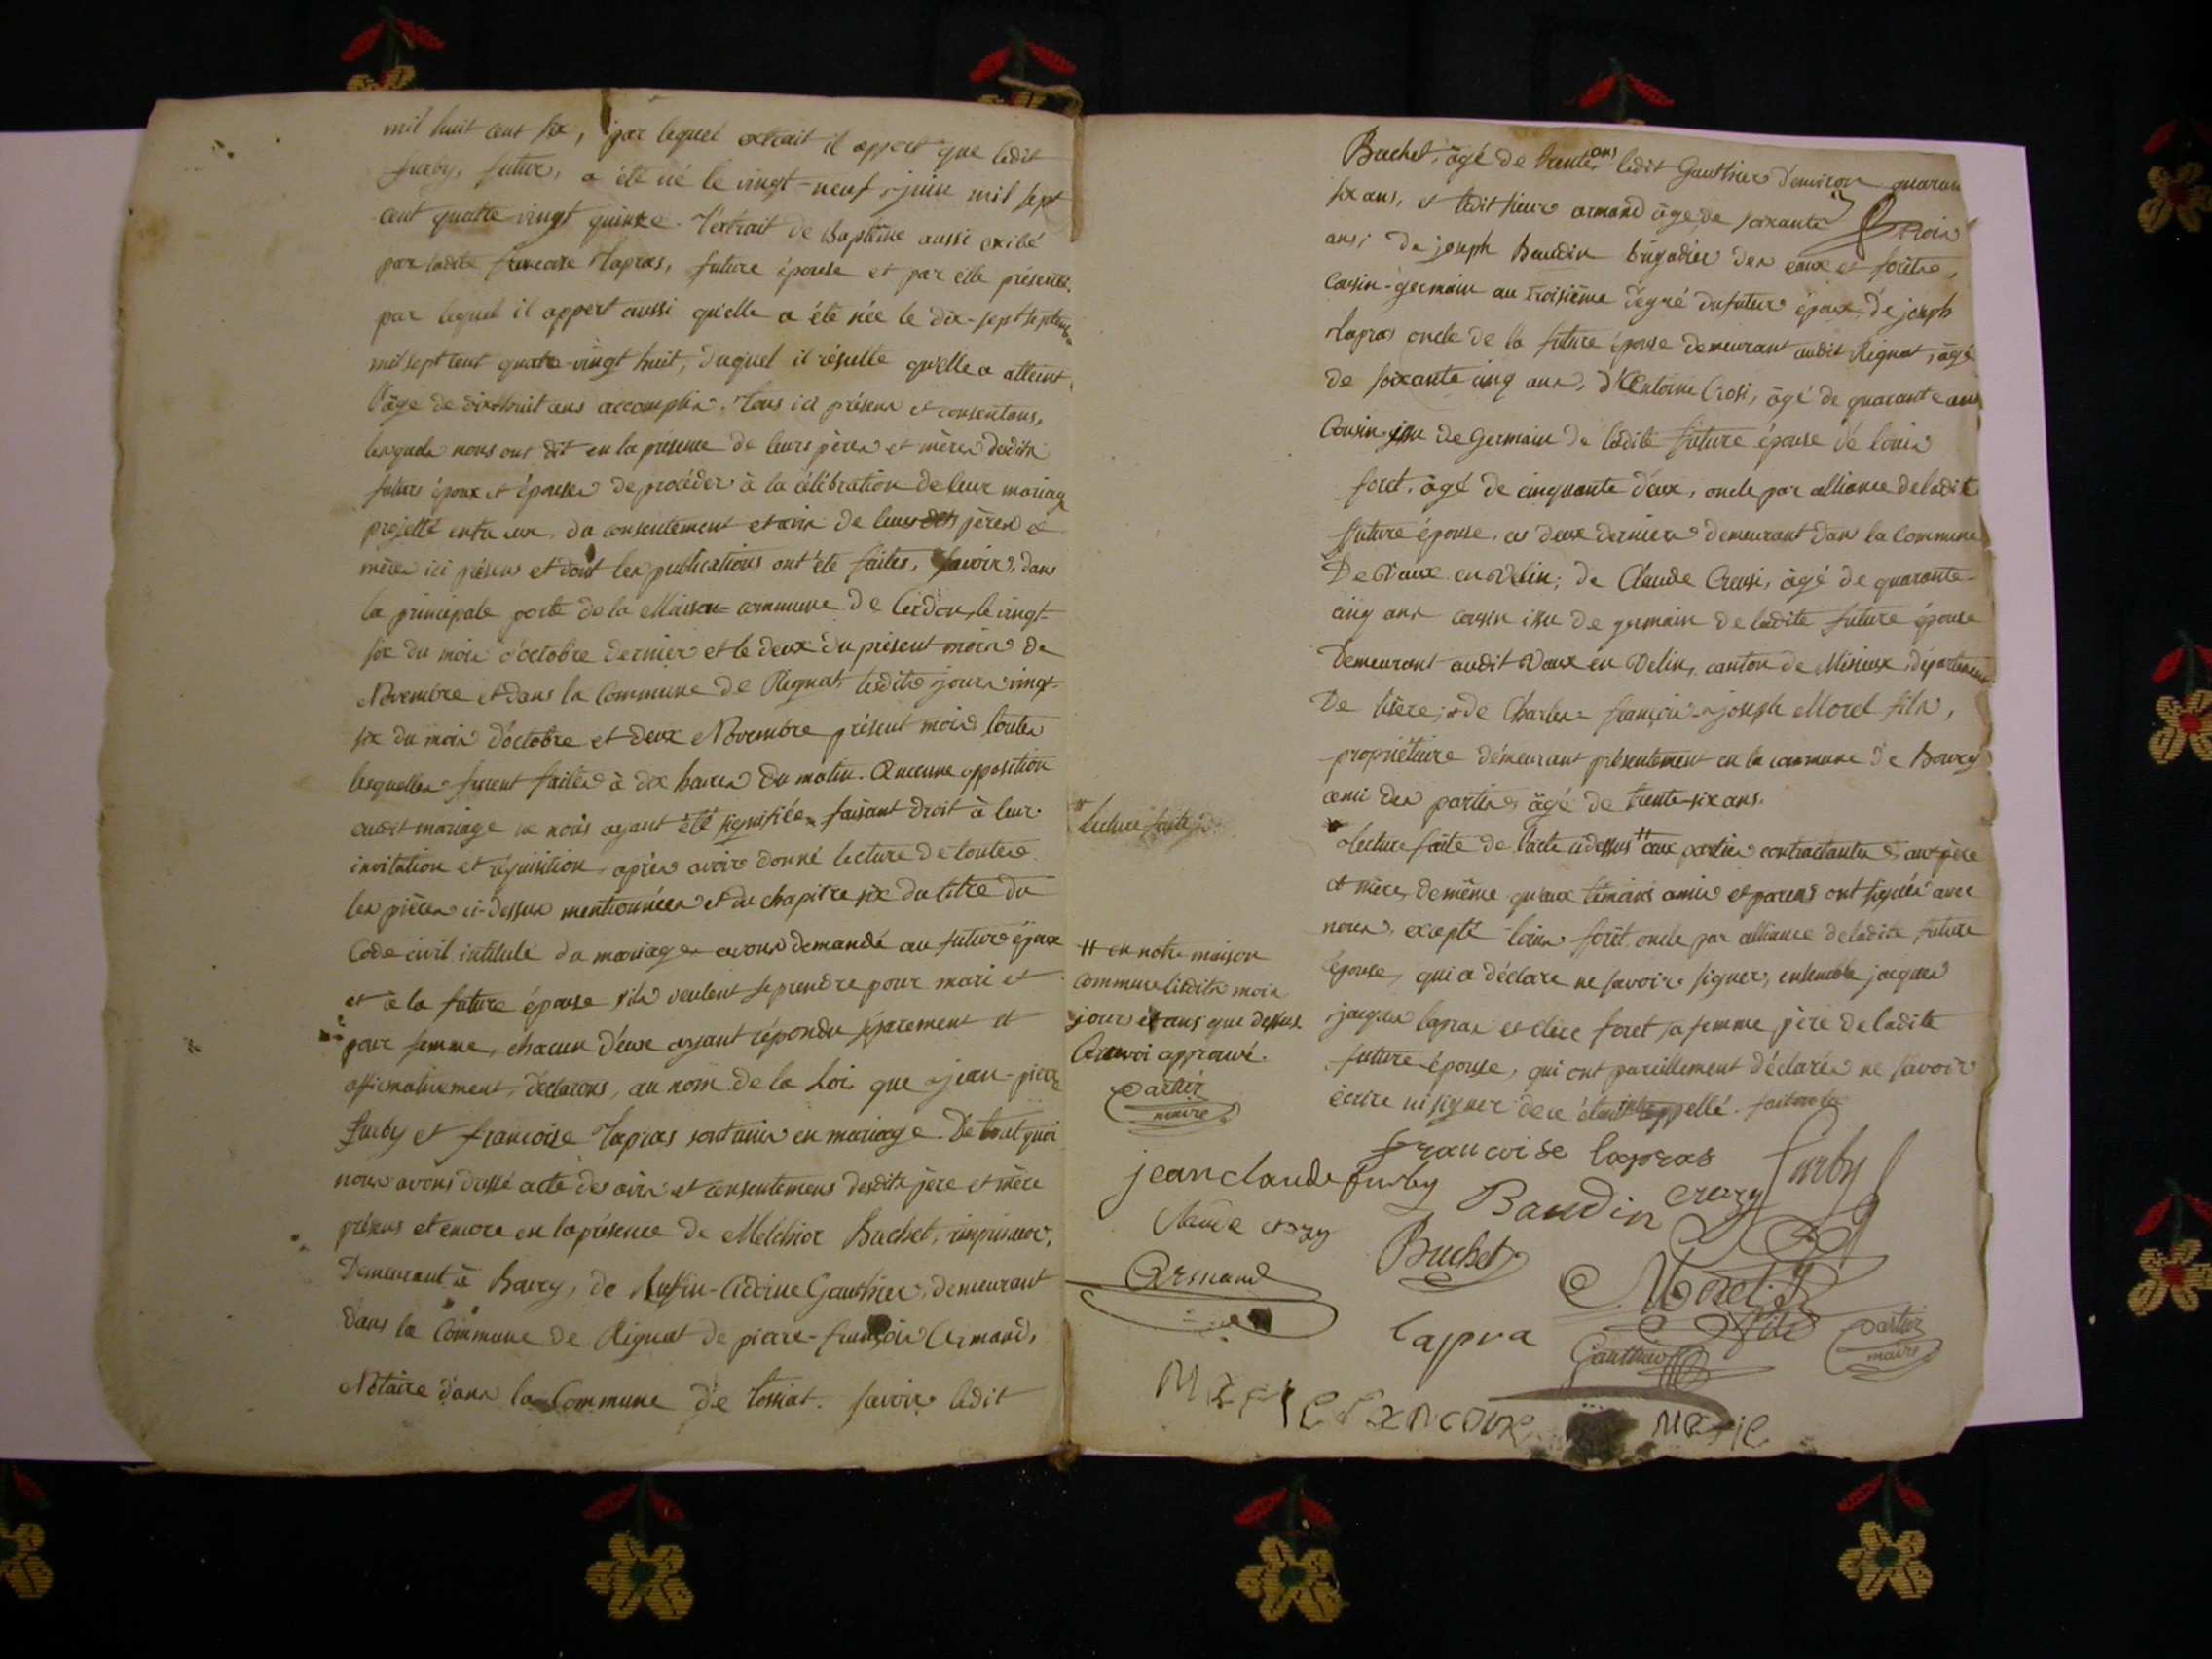 mil huit cent six, par lequel extrait il appert que ledit
furby, futur, a été né le vingt-neuf juin mil sept
cent quatre vingt quinze. l'extrait de Baptême aussi exibé
par ladite francoise lapras, future épouse et par elle présenté.
par lequel il appert aussi qu'elle a été née le dix-sept septembre
mil sept cent quatre-vingt huit, duquel il résulte qu'elle a atteint
l'âge de dix huit ans accomplis. Tous ici présens et consentans,
lesquels nous ont dit en la présence de leurs pères et mères desdits
futurs époux et épouse de procéder à la célébration de leur mariage
projetté entre eux, du consentement et avis de leurs dits pères et
mères ici présens et dont les publications ont été faites, savoir, dans
la principale porte de la Maison-commune de Cerdon, le vingt-
six du mois d'octobre dernier et le deux du présent mois de
Novembre et dans la Commune de Rignat, lesdits jours vingt-
six du mois d'octobre et deux Novembre présent mois, toutes
lesquelles furent faites à dix heures du matin. Aucune opposition
audit mariage ne nous ayant été signifiée, faisant droit à leur
invitation et réquisition, après avoir donné lecture de toutes
les pièces ci-dessus mentionnées et du chapitre six du titre du
Code civil intitulé du mariage avons demandé au futur époux
et à la future épouse s'ils veulent se prendre pour mari et
pour femme, chacun d'eux ayant répondu séparement et
affirmativement, déclarons, au nom de la Loi que jean-pierre
Furby et francoise lapras sont unis en mariage. De tout quoi
nous avons dressé acte des avis et consentemens desdits père et mère
présens et encore en la présence de Melchior Buchet,
Demeurant à Bourg, de Gauthier, demeurant
dans la Commune de Rignat de pierre-françois Armand,
Notaire dans la Commune de Tossiat. savoir ledit
Buchet, âgé de trente ans, ledit Gauthier d'environ quarante
six ans, et ledit sieur armand âgé de soixante trois
ans; de joseph Baudin brigadier des eaux et forêts,
Cousin-germain au troisième dégré du futur époux, de joseph
lapras oncle de la future épouse demeurant audit Rignat, âgé
de soixante cinq ans, d'Antoine Crosi, âgé de quarante ans
Cousin issu de Germain de ladite future épouse de louis
foret, âgé de cinquante deux, oncle par alliance de ladite
future épouse, ces deux derniers demeurant dans la Commune
De Vaux en Velin; de Claude Creusi, âgé de quarante-
cinq ans cousin issu de germain de ladite future épouse
Demeurant audit Vaux en Velin, canton de Mixieux, département
De lisère; et de Charles françois joseph Morel fils,
propriétaire demeurant présentement en la commune de Bourg
ami des parties âgé de trente-six ans.
lecture faite
Lecture faite de l'acte ci dessus # aux parties contractantes, aux père
et mère, de même qu'aux témoins amis et parens ont signées avec
nous, excepté louis forêt, oncle par alliance de ladite future
épouse, qui a déclaré ne savoir signer, ensemble jacques
jacques lapras et foret sa femme père de ladite
future épouse, qui ont pareillement déclarés ne savoir
écrire ni signer de ce
# en notre maison
commune lesdits mois
jour et ans que dessus
Renvoi approuvé.
maire
francoise lapras
furby
jean claude furby
Baudin
crozy
Claude crozy
Buchet
Armand
Morel
fils
lapra
Gauthier
maire